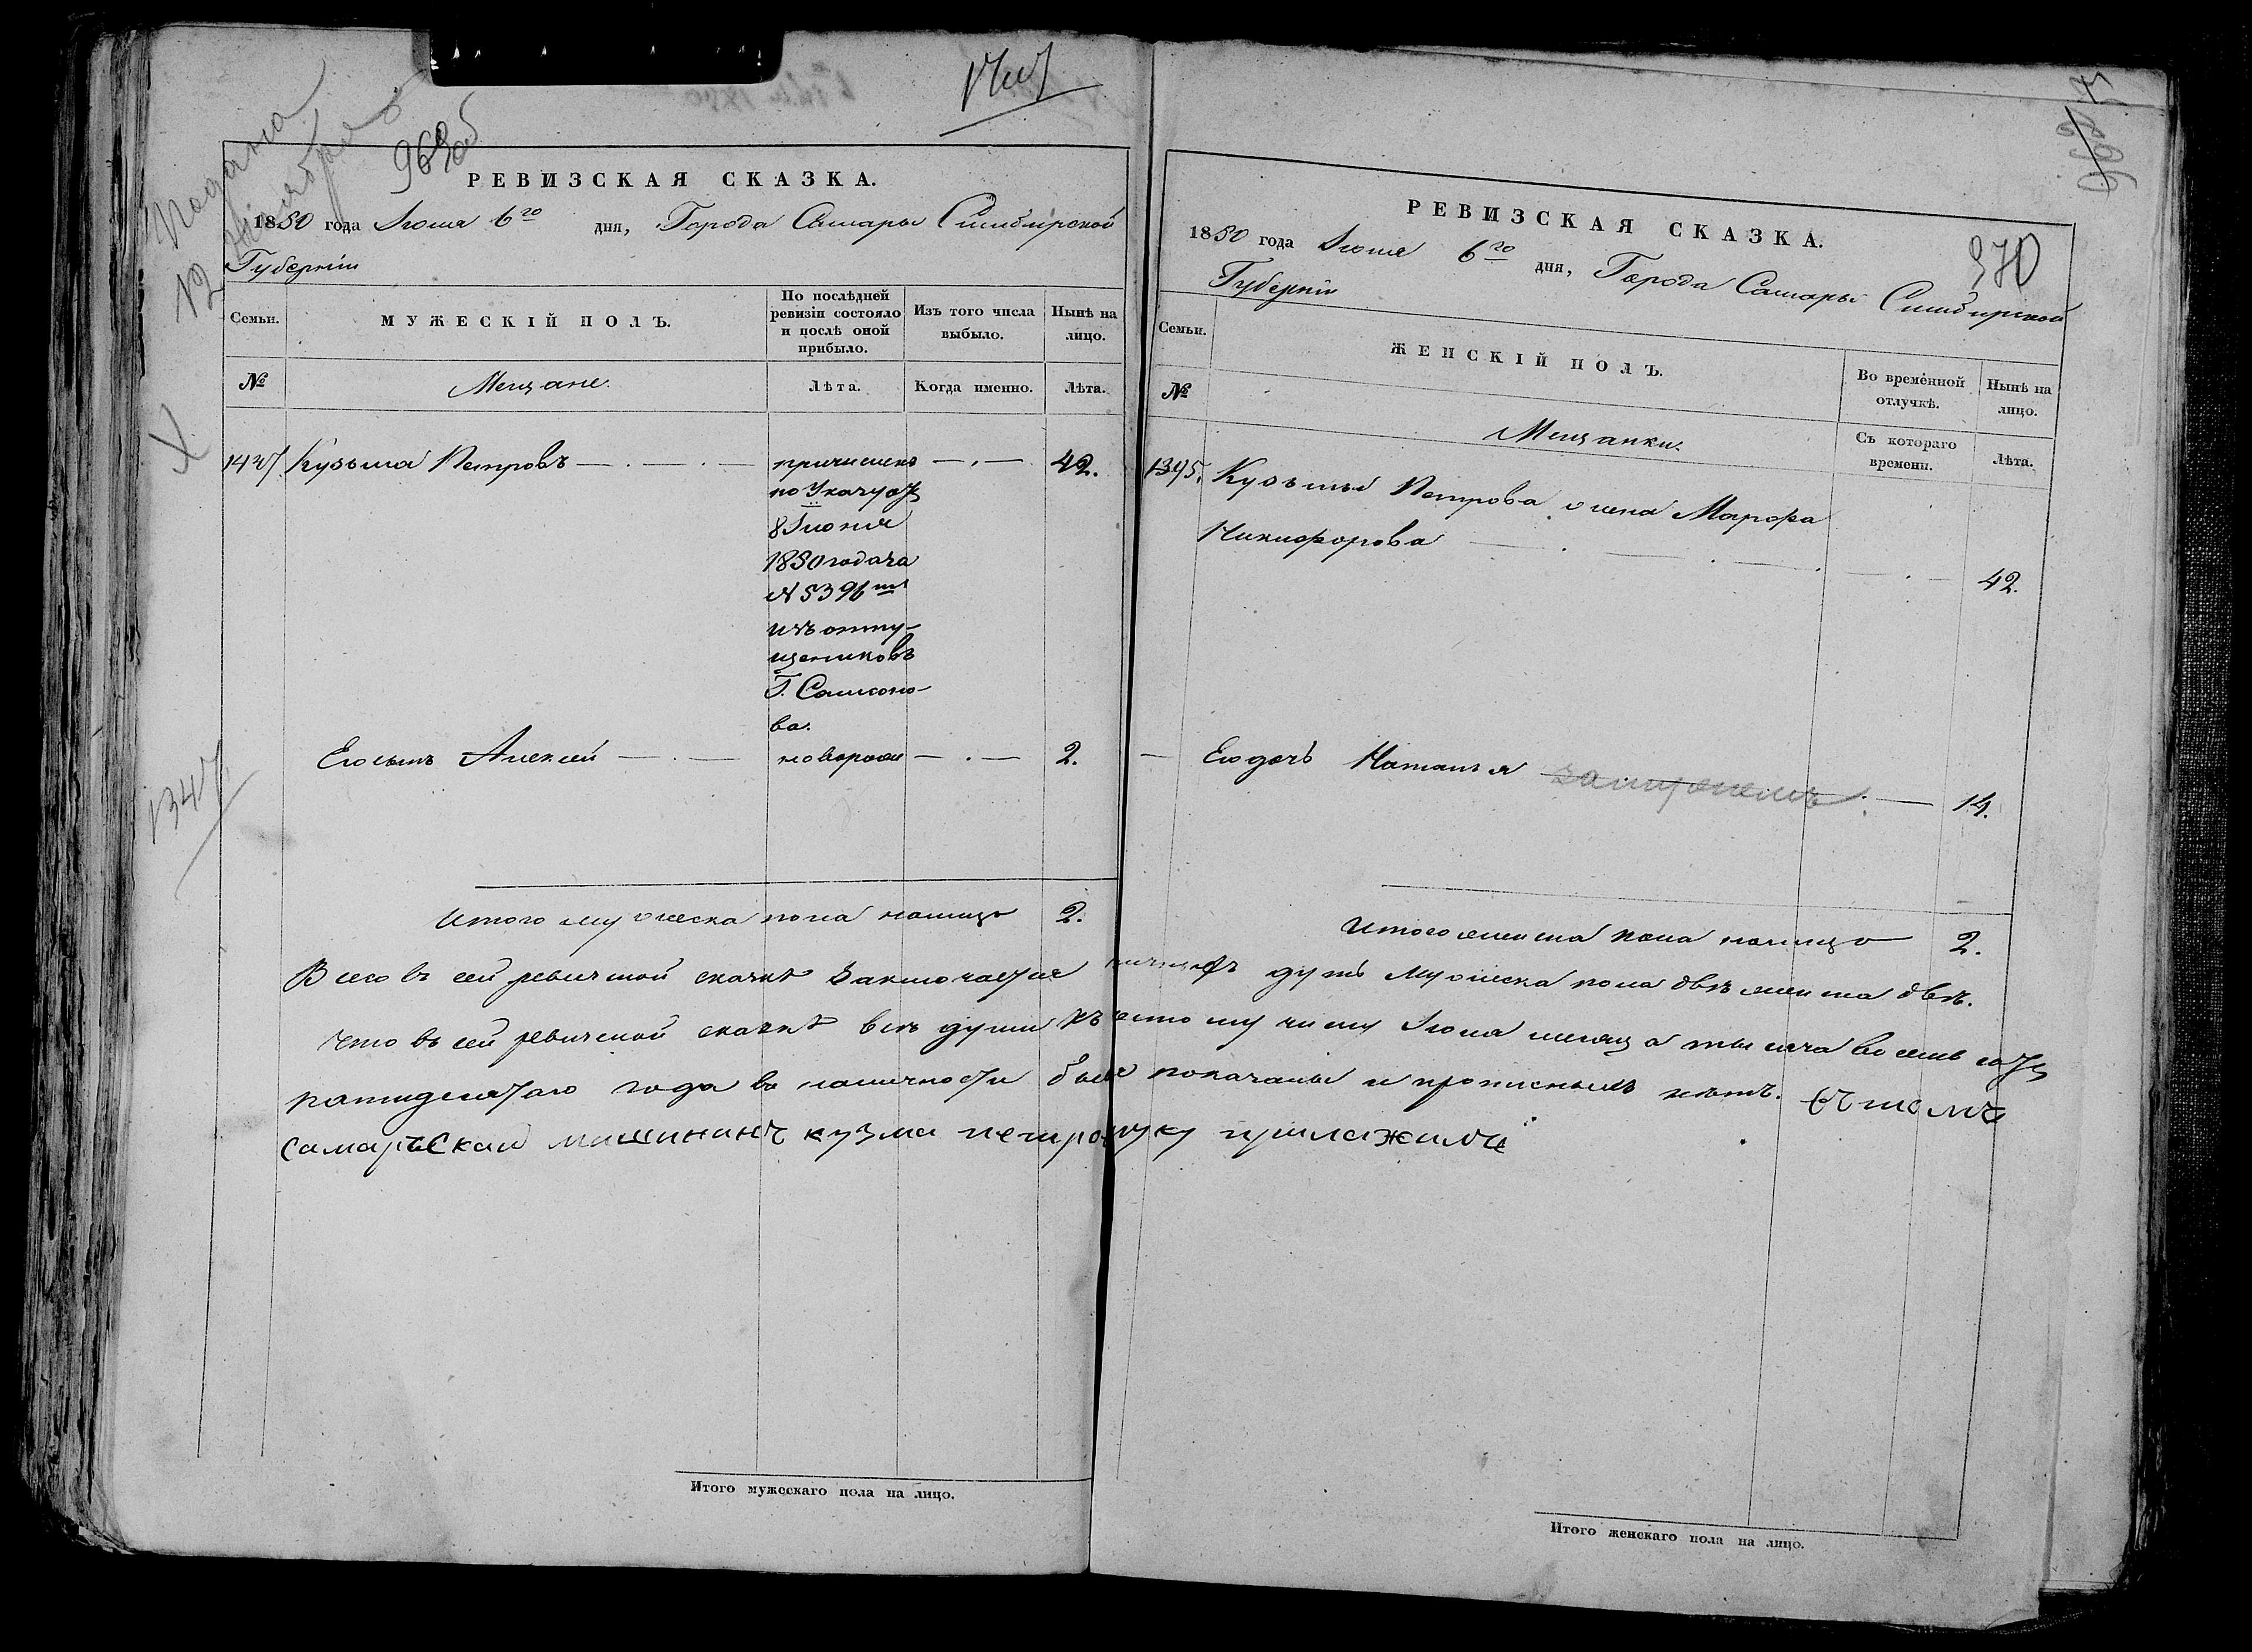 Подана
12
969об
РЕВИЗСКАЯ СКАЗКА.
1850 года Июля 6го дня, Города Самары Симбирской
Губернiи
Семьи.
МУЖЕСКIЙ ПОЛЪ.
По послѣдней ревизiи состояло и послѣ оной прибыло.
Изъ того числа выбыло.
Нынѣ на лицо.
№
Мещане.
Лѣта.
Когда именно.
Лѣта.
Кузьма Петровъ
причисленъ
по Указу отъ
8 Iюня
1850 года за
№ 5396мъ
изъ отпу-
щениковъ
Г. Самсоно-
ва.
42.
Его сынъ Алексей
новорож
2.
1347
Итого мужеска пола налицо 2.
РЕВИЗСКАЯ СКАЗКА.
970
1850 года Июля 6го дня, Города Самары Симбирской
Губернiи
Семьи.
ЖЕНСКIЙ ПОЛЪ.
Во временной отлучкѣ.
Нынѣ на лицо.
№
Мещанки.
Съ котораго времени.
Лѣта.
1395. Кузьмы Петрова жена Марфа
Никифорова
42.
Его дочь Наталья замужемъ 14.
Итого женска пола налицо 2.
Всего въ сей ревизской сказке заключается налицо душъ мужеска пола двѣ женска двѣ.
Что въ сей ревизской сказкѣ всѣ души къ шестому числу Июля месяца тысяча восемь сотъ
пятидесятаго года въ наличности были показаны и прописныхъ нѣтъ. въ томъ
самарьской мишининъ кузма петровъ руку приложилъ
Итого мужескаго пола на лицо.
Итого женскаго пола на лицо.